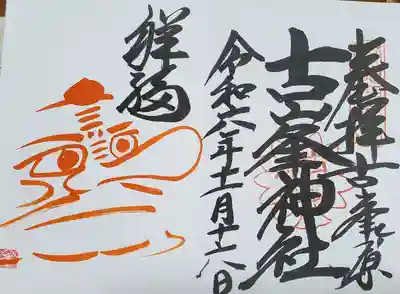 奉拝 古峯ヶ原
古峯神社
令和六年十一月十八日
祥福